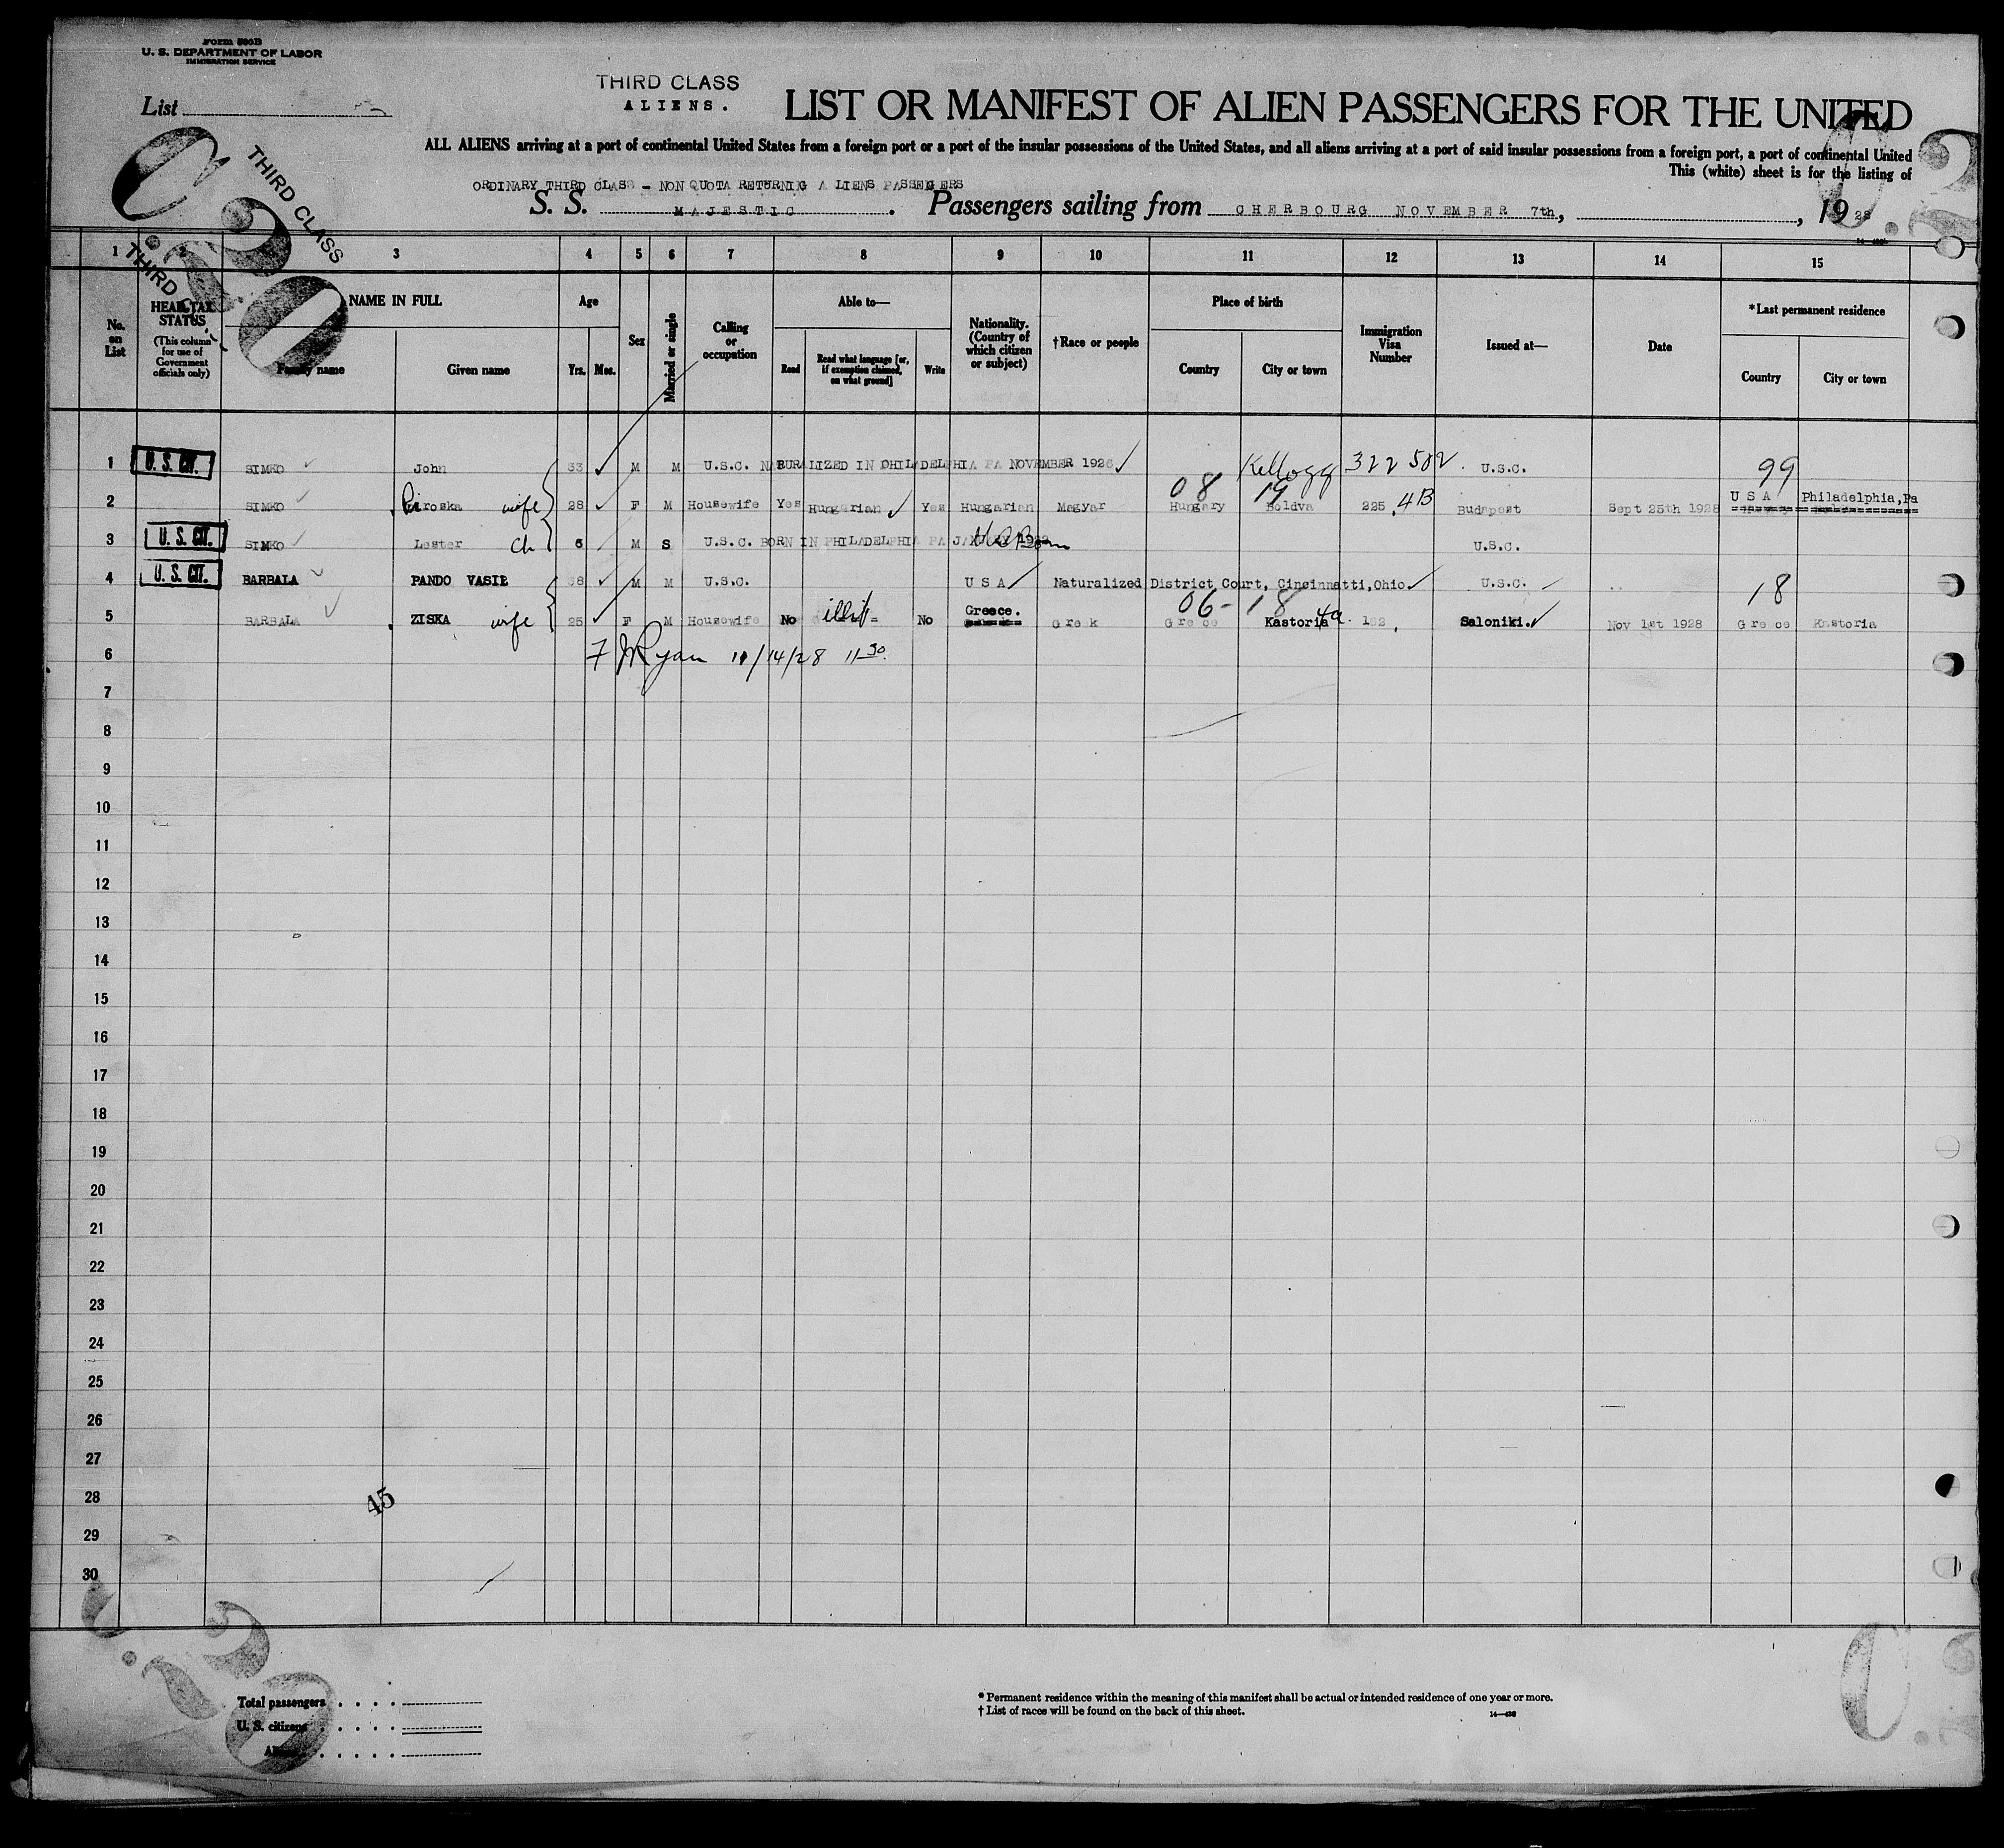 Form 500B
U. S. DEPARTMENT OF LABOR
IMMIGRATION SERVICE
List
THIRD CLASS
ALIENS.
LIST OR MANIFEST OF ALIEN PASSENGERS FOR THE UNITED
ALL ALIENS arriving at a port of continental United States from a foreign port or a port of the insular possessions of the United States, and all aliens arriving at a port of said insular possessions from a foreign port, a port of continental United
This (white) sheet is for the listing of
ORDINARY THIRD CLASS - NON QUOTA RETURNING A LIENS PASSENGERS
S. S. MAJESTIC. Passengers sailing from CHERBOURG NOVEMBER 7th, , 19 28
THIRD CLASS
THIRD
1 3 4 5 6 7 8 9 10 11 12 13 14 15
No. on List
HEAD-TAX STATUS
(This column for use of Government officials only)
NAME IN FULL
Family name Given name
Age
Yrs. Mos.
Sex
Married or single
Calling or occupation
Able to—
Read Read what language [or, if exemption claimed, on what ground] Write
Nationality. (Country of which citizen or subject)
†Race or people
Place of birth
Country City or town
Immigration Visa Number
Issued at—
Date
*Last permanent residence
Country City or town
1 U. S. CIT. SIMKO John 33 M M U.S.C. NATURALIZED IN PHILADELPHIA PA NOVEMBER 1926 Kellogg 322502. U.S.C. 99
08 19
2 SIMKO Piroska wife 28 F M Housewife Yes Hungarian Yes Hungarian Magyar Hungary Boldva 225. 4B Budapest Sept 25th 1928 U S A Philadelphia,Pa
3 U. S. CIT. SIMKO Lester ch 6 M S U.S.C. BORN IN PHILADELPHIA PA JANUARY U.S.C.
4 U. S. CIT. BARBALA PANDO VASIL 38 M M U.S.C. U S A Naturalized District Court, Cincinnatti,Ohio U.S.C. 18
06-18
5 BARBALA ZISKA wife 25 F M Housewife No illit- No Greece. Greek Greece Kastoria 4a. 182. Saloniki. Nov 1st 1928 Greece Kastoria
6 F J Ryan 11/14/28 11 30
7
8
9
10
11
12
13
14
15
16
17
18
19
20
21
22
23
24
25
26
27
28 45
29
30
Total passengers . . . .
U. S. citizens . . . . .
Aliens . . . . .
* Permanent residence within the meaning of this manifest shall be actual or intended residence of one year or more.
† List of races will be found on the back of this sheet.